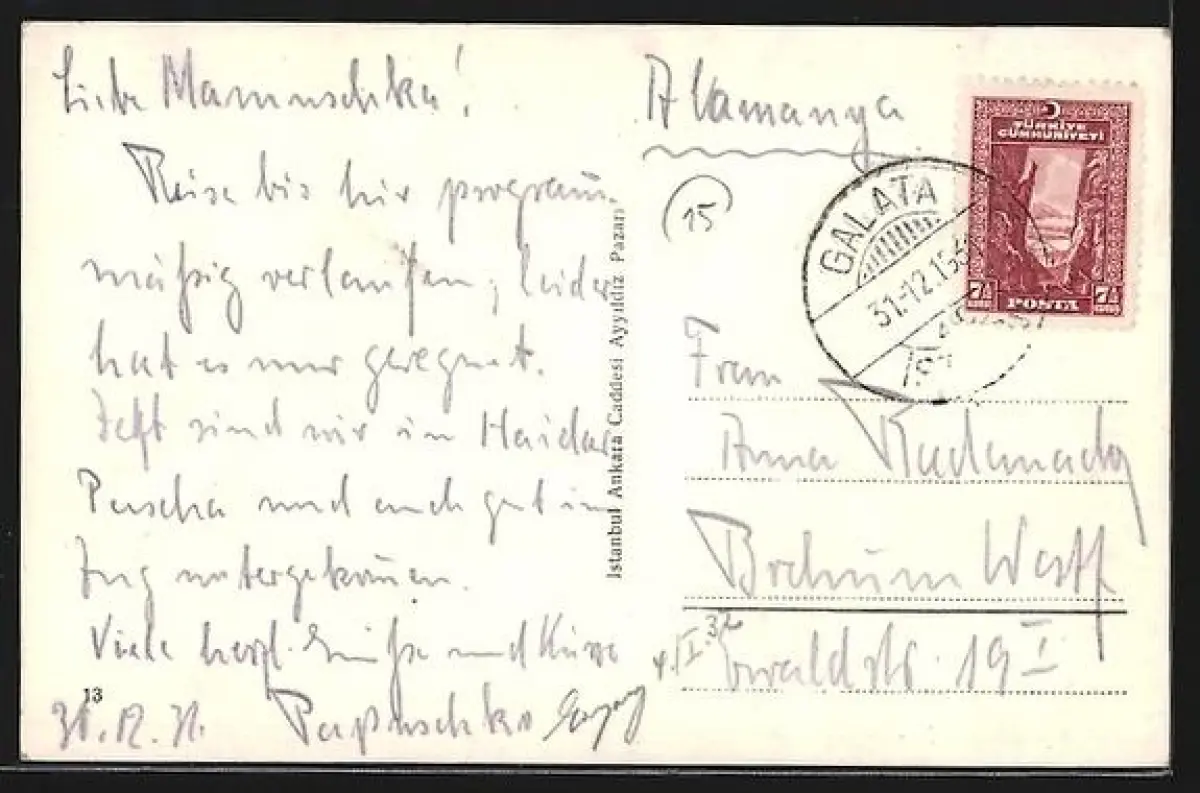 Liebe Mamuschka!
Reise bis hier program̅-
mäßig verlaufen, leider
hat es nur geregnet.
Jetzt sind wir in Haidar
Pascha und auch gut im
Zug untergekom̅en.
Viele herzl. Grüße und Küsse
Papuschka
31.12.31.
13
Istanbul Ankara Caddesi Ayyıldız Pazarı
Alamanya
15
TÜRKİYE
CÜMHURİYETİ
7½ 7½
POSTA
GALATA
31.-12.
Frau
Anna
Bochum Westf
4.I.32
19 I